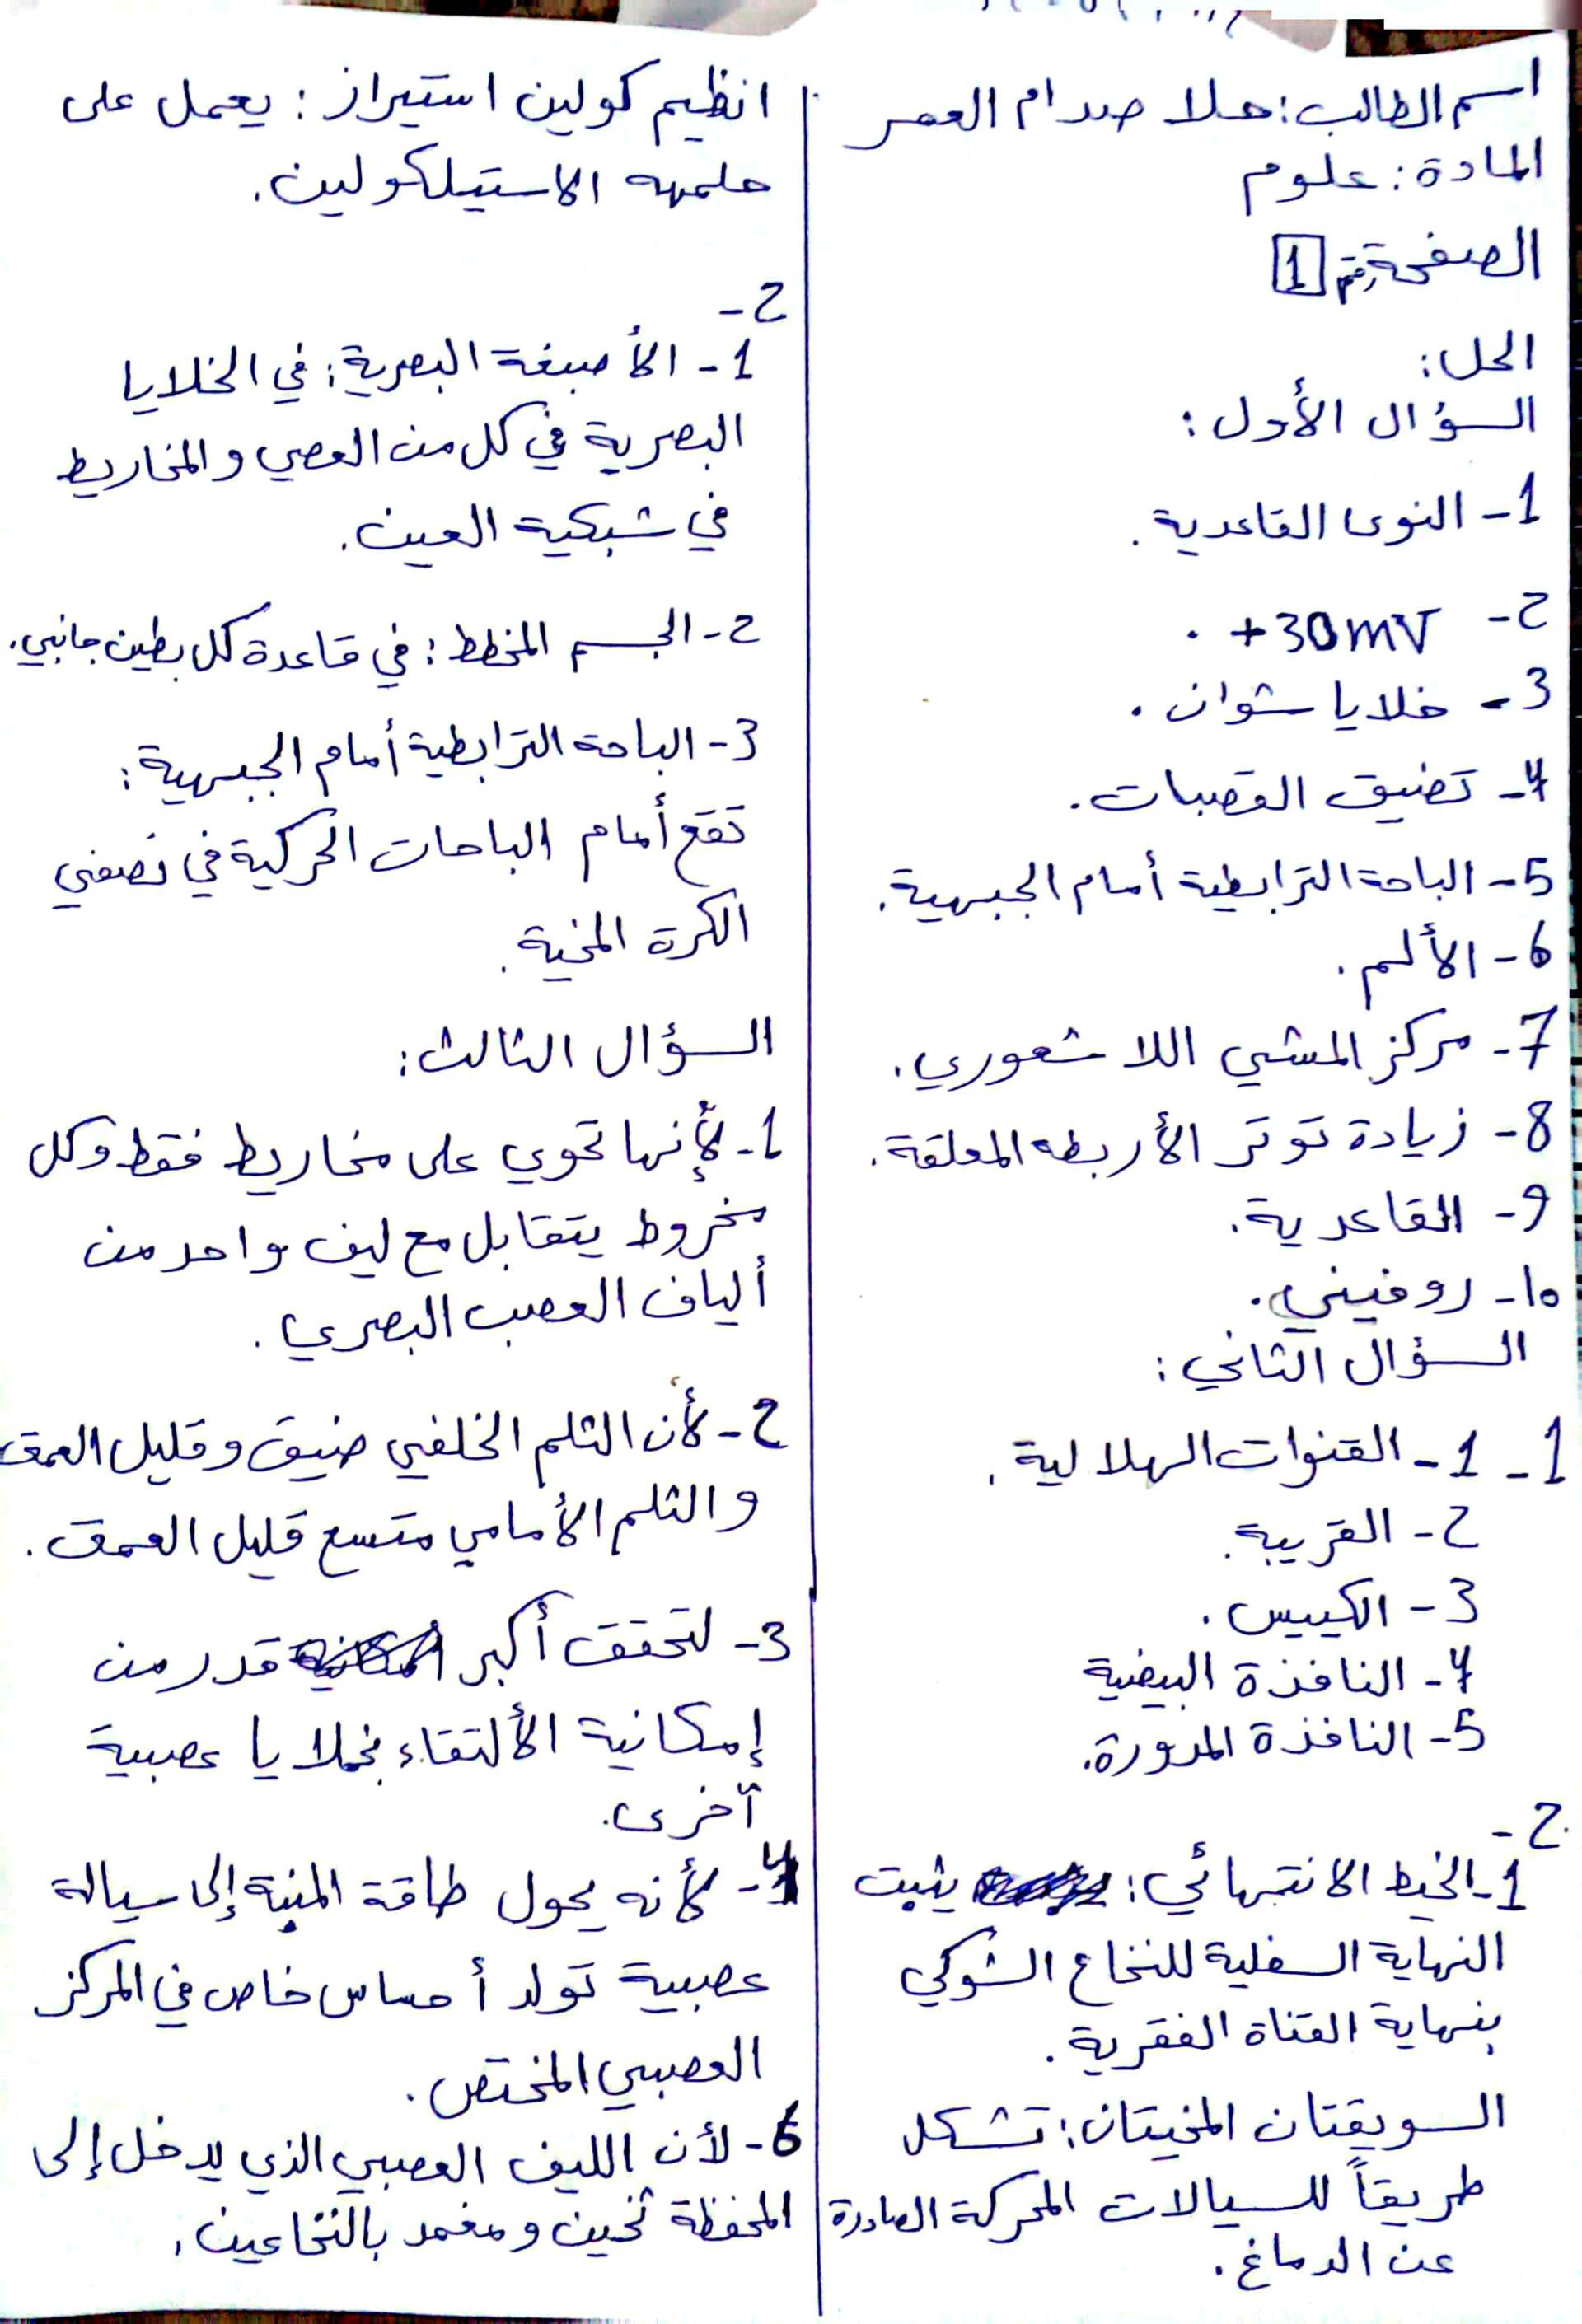 اسم الطالب: هلا صدام العمر
المادة: علوم
الصفحة رقم 1
الحل:
السؤال الأول:
1- النوى القاعدية.
2- +30mV.
3- خلايا شوان.
4- تضيق القصبات.
5- الباحة الترابطية أمام الجبهية.
6- الألم.
7- مركز المشي اللا شعوري.
8- زيادة توتر الأربطه المعلقة.
9- القاعدية.
10- روفيني.
السؤال الثاني:
1- 1- القنوات الهلالية.
2- القريبة.
3- الكييس.
4- النافذة البيضية
5- النافذة المدورة.
2-
1- الخيط الانتهائي: يثبت
النهاية السفلية للنخاع الشوكي
بنهاية القناة الفقرية.
السويقتان المخيتان: تشكل
طريقاً للسيالات المحركة الصادرة
عن الدماغ.
انظيم كولين استيراز: يعمل على
حلمهه الاستيلكولين.
2-
1- الأصبغة البصرية: في الخلايا
البصرية في كل من العصي والمخاريط
في شبكية العين.
2- الجسم المخطط: في قاعدة كل بطين جانبي.
3- الباحة الترابطية أمام الجبهية:
تقع أمام الباحات الحركية في نصفي
الكرة المخية.
السؤال الثالث:
1- لأنها تحوي على مخاريط فقط وكل
مخروط يتقابل مع ليف واحد من
ألياف العصب البصري.
2- لأن الثلم الخلفي ضيق وقليل العمق
والثلم الأمامي متسع قليل العمق.
3- لتحقق أكبر قدر من
إمكانية الألتقاء بخلايا عصبية
آخرى.
4- لأنه يحول طاقة المنبه إلى سيالة
عصبية تولد أحساس خاص في المركز
العصبي المختص.
6- لأن الليف العصبي الذي يدخل إلى
المحفظة ثخين ومغمد بالنخاعين.